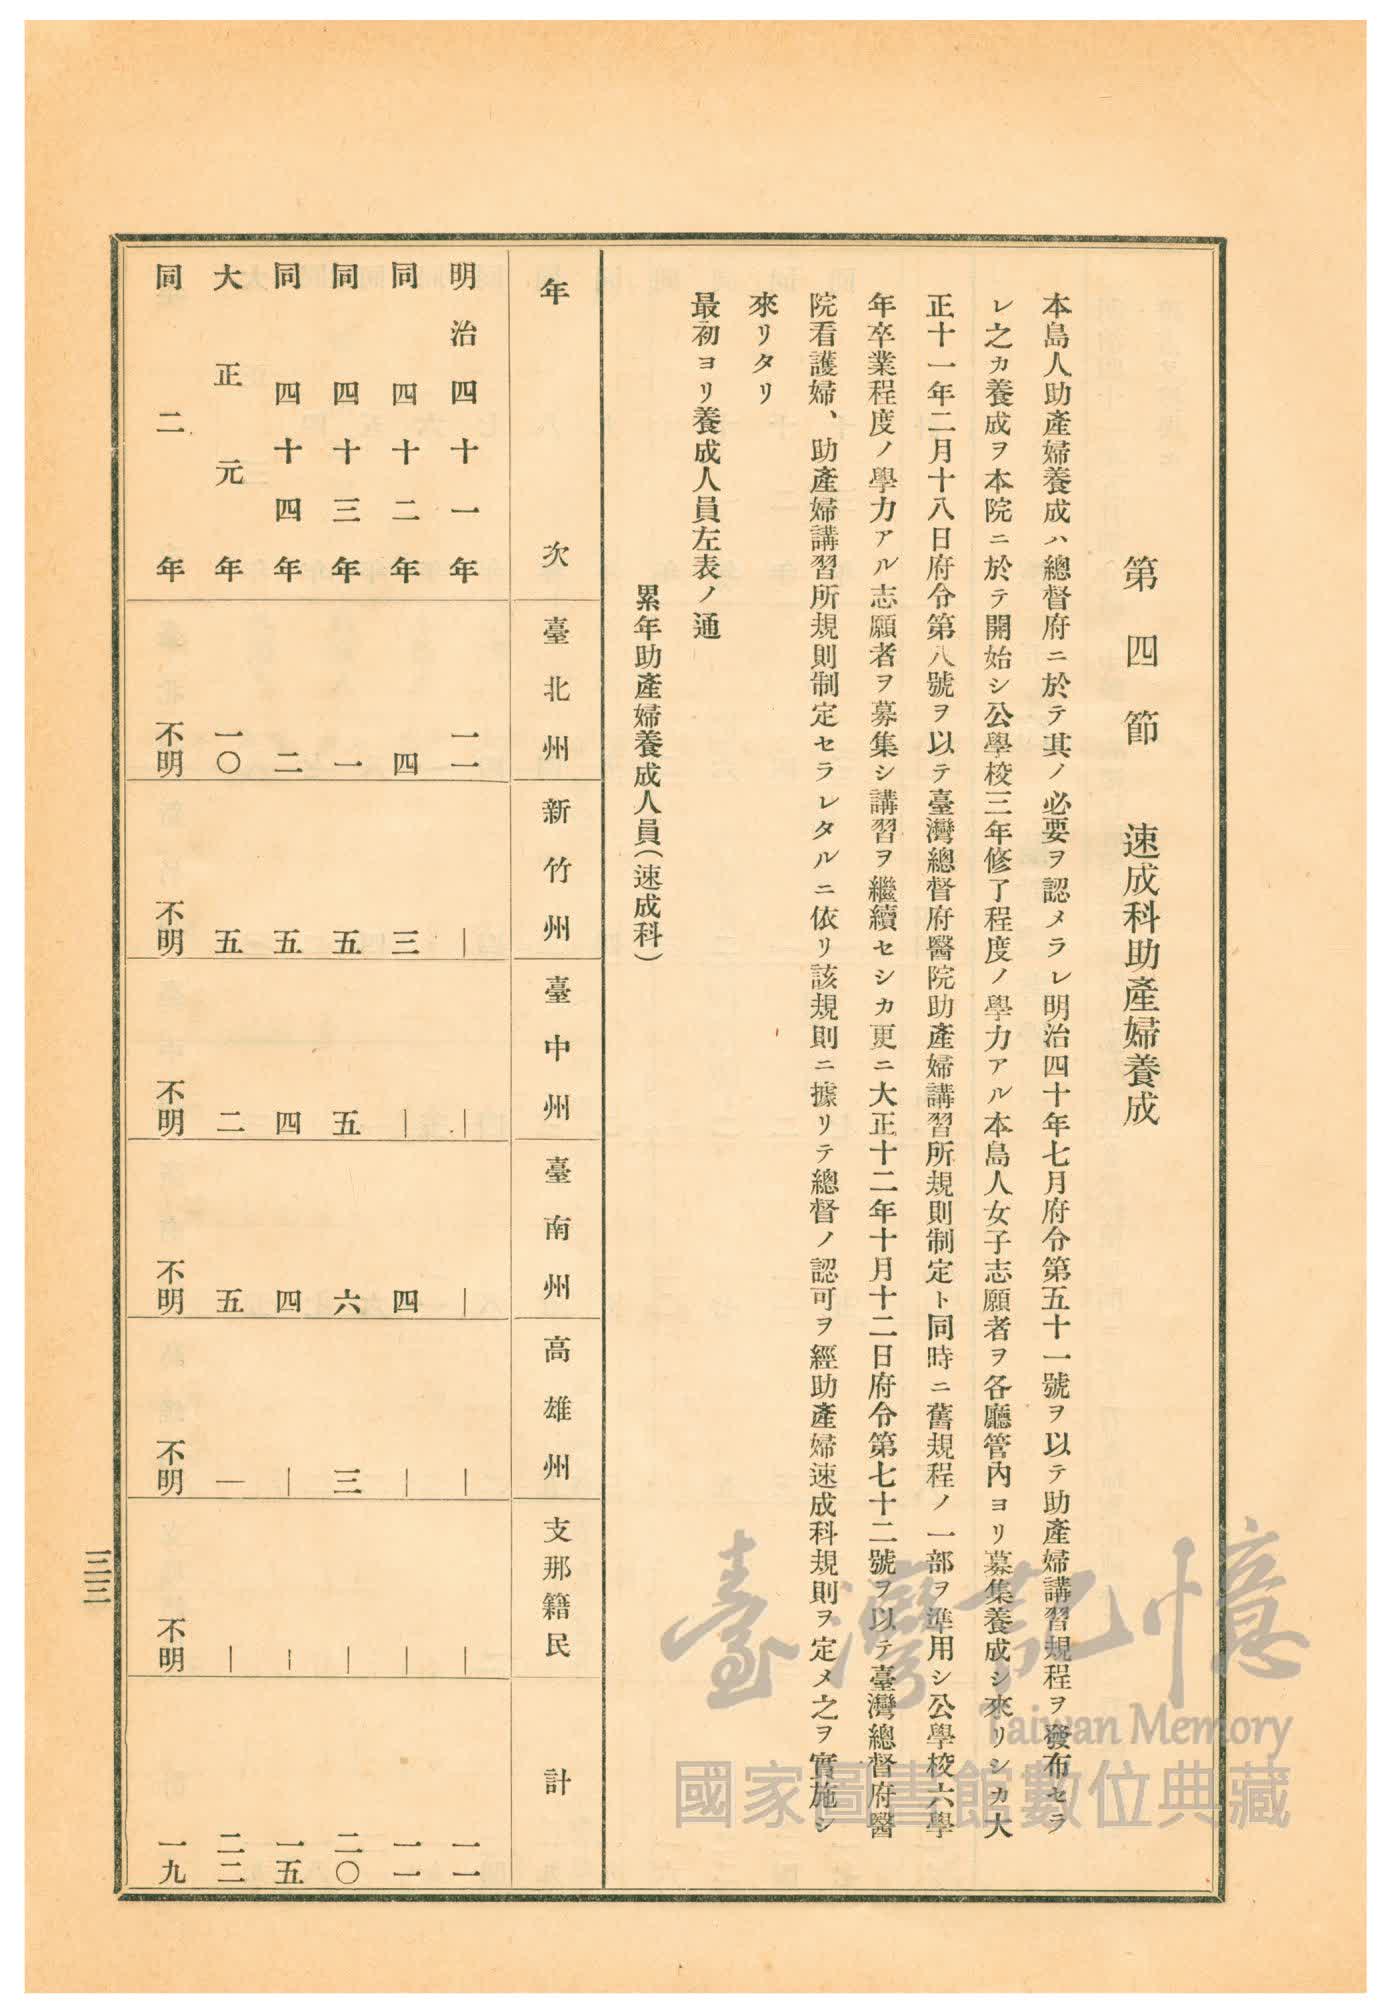 第四節　速成科助產婦養成
本島人助產婦養成ハ總督府ニ於テ其ノ必要ヲ認メラレ明治四十年七月府令第五十一號ヲ以テ助產婦講習規程ヲ發布セラ
レ之カ養成ヲ本院ニ於テ開始シ公學校三年修了程度ノ學力アル本島人女子志願者ヲ各廳管內ヨリ募集養成シ來リシカ大
正十一年二月十八日府令第八號ヲ以テ臺灣總督府醫院助產婦講習所規則制定ト同時ニ舊規程ノ一部ヲ準用シ公學校六學
年卒業程度ノ學力アル志願者ヲ募集シ講習ヲ繼續セシカ更ニ大正十二年十月十二日府令第七十二號ヲ以テ臺灣總督府醫
院看護婦、助產婦講習所規則制定セラレタルニ依リ該規則ニ據リテ總督ノ認可ヲ經助產婦速成科規則ヲ定メ之ヲ實施シ
來リタリ
最初ヨリ養成人員左表ノ通
累年助產婦養成人員（速成科）
年次　臺北州　新竹州　臺中州　臺南州　高雄州　支那籍民　計
明治四十一年　一一　｜　｜　｜　｜　｜　一一
同四十二年　四　三　｜　四　｜　｜　一一
同四十三年　一　五　五　六　三　｜　二〇
同四十四年　二　五　四　四　｜　｜　一五
大正元年　一〇　五　二　五　｜　｜　二二
同二年　不明　不明　不明　不明　不明　不明　一九
三三
臺灣記憶
Taiwan Memory
國家圖書館數位典藏